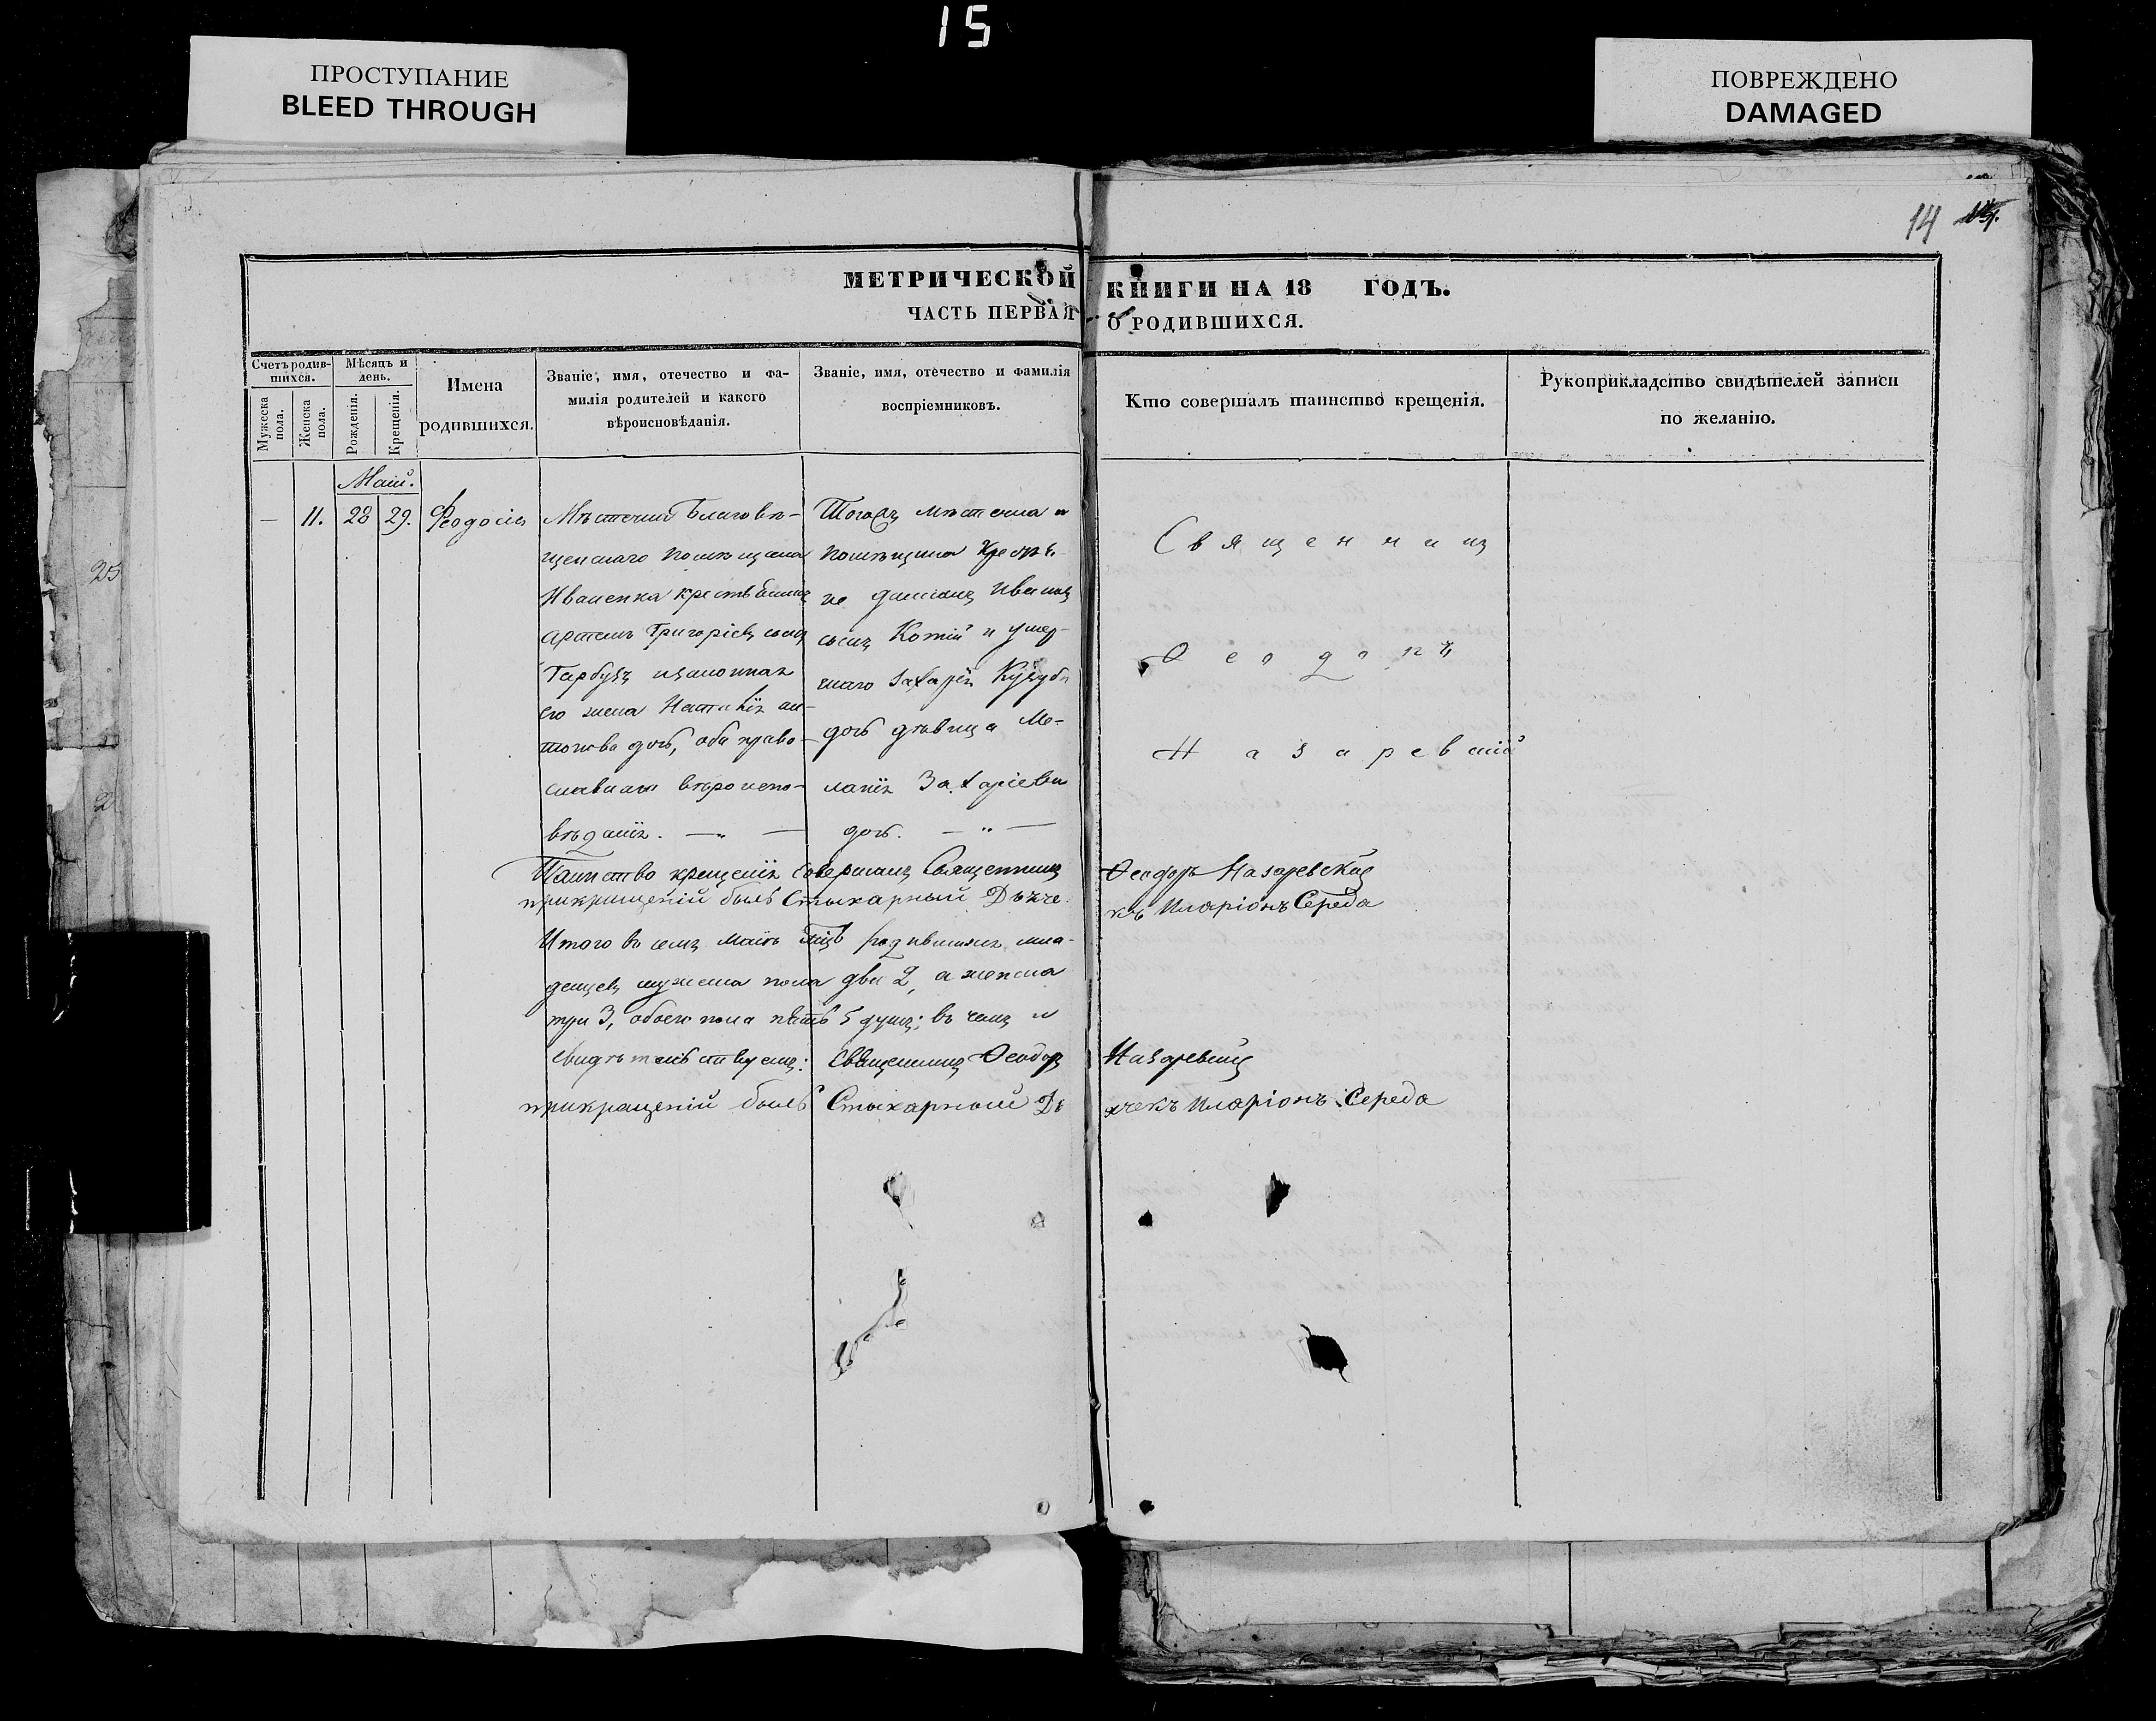 15
ПРОСТУПАНИЕ
BLEED THROUGH
ПОВРЕЖДЕНО
DAMAGED
14
МЕТРИЧЕСКОЙ КНИГИ НА 18 ГОДЪ.
ЧАСТЬ ПЕРВАЯ О РОДИВШИХСЯ.
Счетъ родив-
шихся.
Мужеска
пола.
Женска
пола.
Мѣсяцъ и
день.
Рожденія.
Крещенія.
Имена
родившихся.
Званіе, имя, отечество и фа-
милія родителей и какого
вѣроисповѣданія.
Званіе, имя, отечество и фамилія
воспріемниковъ.
Кто совершалъ таинство крещенія.
Рукоприкладство свидѣтелей записи
по желанію.
Маій.
— 11. 28 29. Феодосія
Мѣстечка Благовѣ-
щенскаго помѣщика
Иваненка крестьянинъ
Артемъ Григоріевъ сынъ
Гарбузъ изаконная
его жена Наталія ан-
тонова дочь, оба право-
славнаго вѣроиспо-
вѣданія. — „ —
Тогожъ мѣстечка и
помѣщика Крестья-
не Даміанъ Ивановъ
сынъ Котій и умер-
шаго Захарія
дочь дѣвица Ме-
ланія Захаріева
дочь. — „ —
Священникъ
Ѳеодоръ
Назаревскій
Таинство крещенія совершалъ Священникъ Ѳеодоръ Назаревскій
прикрищеній былъ Стыхарный Дьяче- къ Иларіонъ Середа
Итого въ семъ маіѣ мцѣ родившихся мла-
денцевъ мужеска пола два 2, а женска
три 3, обоего пола пять 5 душъ; въ чемъ и
свидѣтельствуемъ: Священникъ Ѳеодоръ Назаревскій
прикращеній былъ Стыхарный Дь ячекъ Иларіонъ Середа
25
2